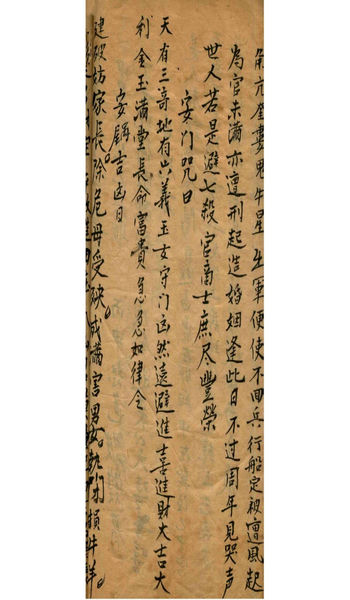 角亢奎婁鬼牛星出軍便使不回兵行船定被遭風起
為官未滿亦遭刑起造婚姻逢此日不过周年見哭声
世人若是避七殺官商士庶尽豐榮
安门咒曰
天有三奇地有六義玉女守门凶然遠避進喜進財大吉大
利金玉滿堂長命富貴急急如律令
安鍋吉凶日
建破妨家長除危母受殃成滿害男女執闭損牛羊